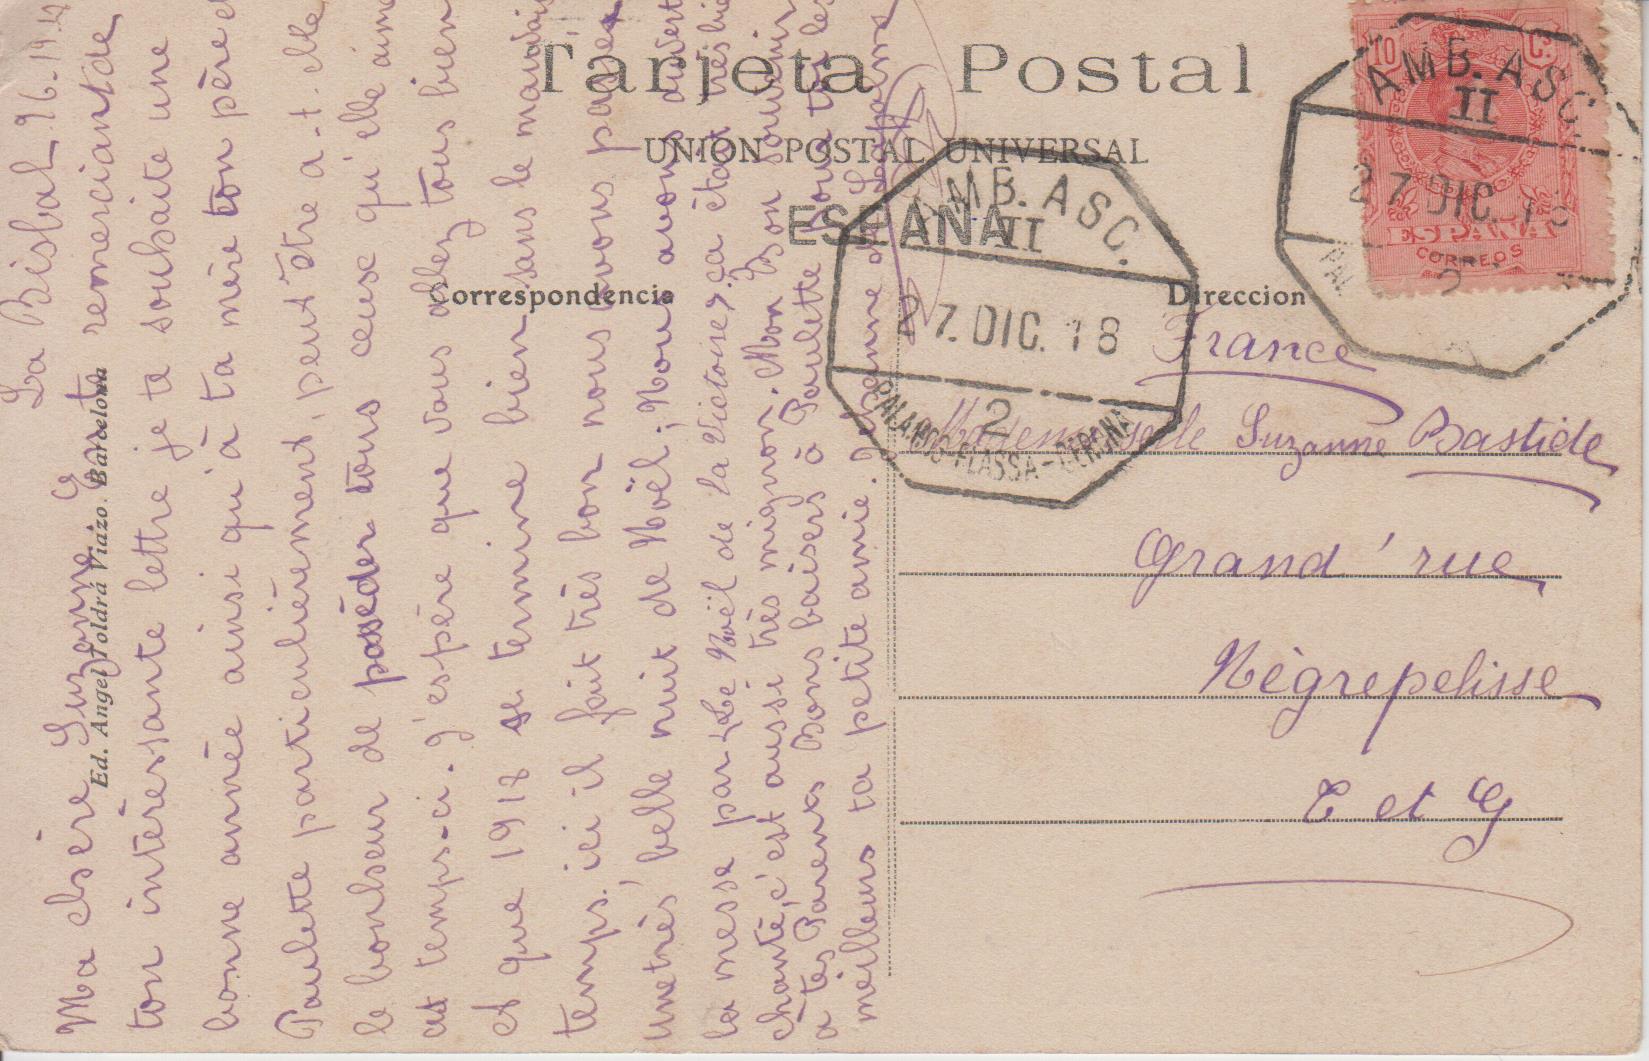 Tarjeta Postal
UNION POSTAL UNIVERSAL
ESPAÑA
Correspondencia
Direccion
10 Cs.
ESPAÑA
CORREOS
AMB. ASC.
II
27 DIC. 18
2
AMB. ASC.
II
27. DIC. 18
2
PALAMOS-FLASSA-GERONA
France
Mademoiselle Suzanne Bastide
Grand'rue
Nègrepelisse
T et G
Ed. Angel Toldrá Viazo. Barcelona
La Bisbal 26.12
Ma chère Suzanne, En te remerciant de
ton intéressante lettre je te souhaite une
bonne année ainsi qu'à ta mère ton père et
Paulette particulièrement, peut être a-t-elle
le bonheur de posséder tous ceux qu'elle aime
ce temps-ci. J'espère que vous allez tous bien
et que 1918 se termine bien sans le mauvais
temps. ici il fait très bon nous avons passé
une très belle nuit de Noël; Nous avons
la messe par "Le Noël de la Victoire", ça était très bien
chanté, c'est aussi très mignon. Mon Bon souvenir
a tes Parents Bons baisers à Paulette pour toi les
meilleurs ta petite amie. Jeanne